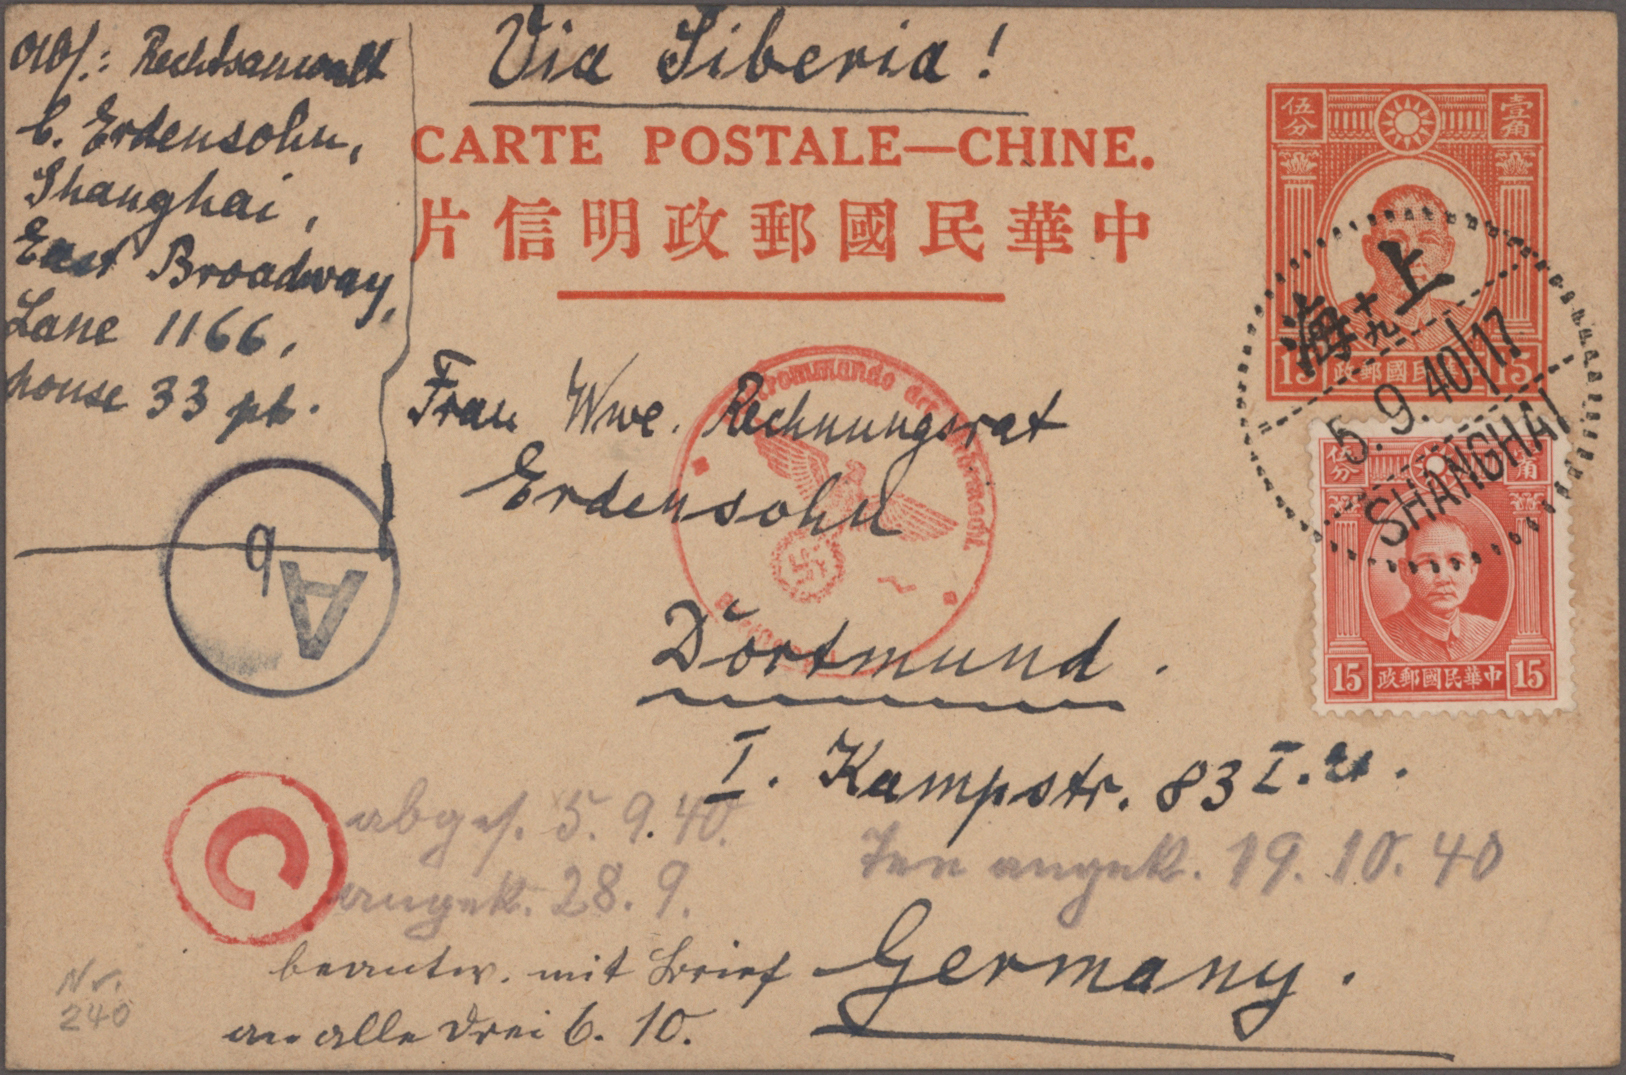 Via Siberia!
Abs.: Rechtsanwalt
C. Erdensohn,
Shanghai,
East Broadway,
Lane 1166,
house 33 pt.
CARTE POSTALE—CHINE.
片信明政郵國民華中
伍分 壹角
15 政郵國民華中 15
上海
十九
5.9.40/17
SHANGHAI
伍分 壹角
15 政郵國民華中 15
Frau Wwe. Rechnungsrat
Erdensohn
Dortmund.
I. Kampstr. 83 I.
Germany.
Oberkommando der Wehrmacht
A
b
C
abges. 5.9.40.
angek. 28.9.
angek. 19.10.40
beantw. mit Brief
an alle drei 6.10.
Nr.
240